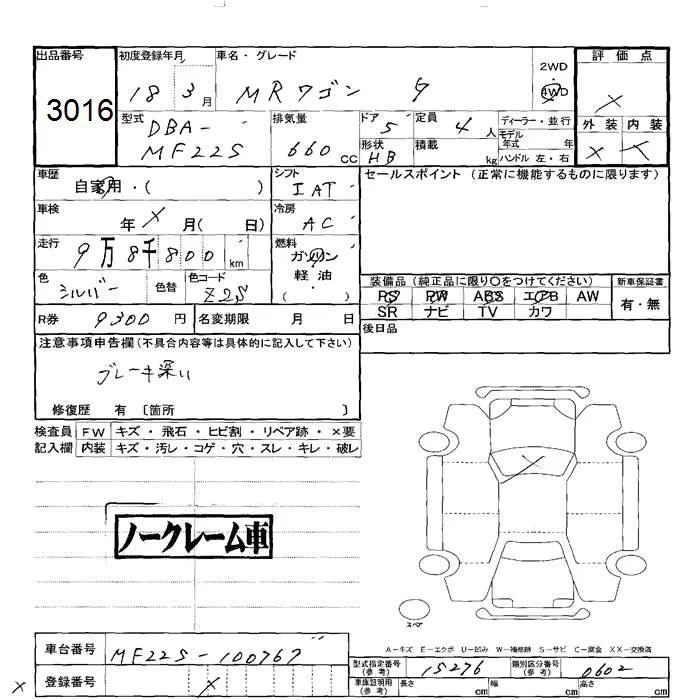 出品番号 初度登録年月 車名・グレード 2WD 評価点
3016 18 3月 MRワゴン G 4WD ×
型式 排気量 ドア 定員 ディーラー・並行 外装 内装
DBA- 5 4人 モデル年式 年 × ×
MF22S 660cc 形状 HB 積載 kg ハンドル 左・右
車歴 シフト セールスポイント (正常に機能するものに限ります)
自家用・( ) IAT
車検 冷房
年 × 月(日) AC
走行 燃料
9万8千800km ガソリン
色 色替 色コード 軽油・ 装備品 (純正品に限り○をつけてください) 新車保証書
シルバー Z2S ( ) PS PW ABS エアB AW 有・無
SR ナビ TV カワ
R券 9300円 名変期限 月 日 後日品
注意事項申告欄(不具合内容等は具体的に記入して下さい)
ブレーキ深い
修復歴 有 〔箇所 〕
検査員 FW キズ・飛石・ヒビ割・リペア跡・×要
記入欄 内装 キズ・汚レ・コゲ・穴・スレ・キレ・破レ
×
ノークレーム車
スペア
A-キズ E-エクボ U-凹み W-補修跡 S-サビ C-腐食 XX-交換済
車台番号 MF22S-100767 型式指定番号(参考) 15276 類別区分番号(参考) 0602
× 登録番号 × 車庫証明用(参考) 長さ cm 幅 cm 高さ cm